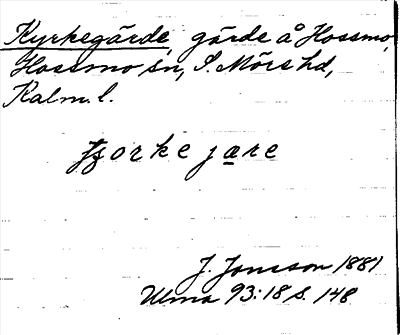 Kyrkegärde, gärde å Hossmo,
Hossmo sn, S. Möre hd,
Kalm. l.
kjorkejare
J. Jonsson 1881
Ulma 93:18 s. 148